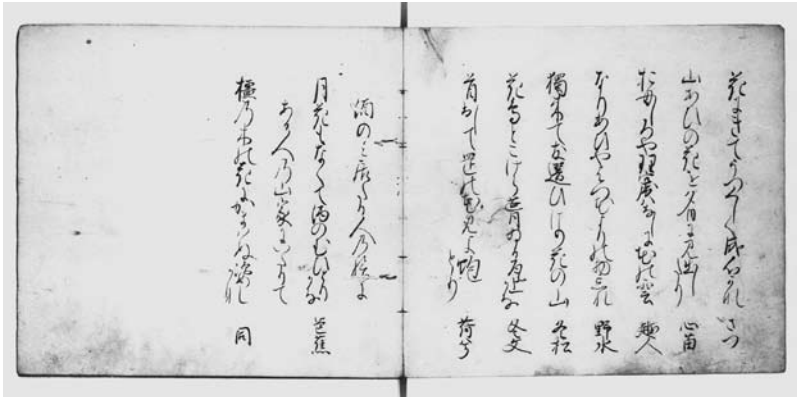 花にきてうつくしく成心かな たつ
山あひの花を夕日に見出したり 心苗
おもしろや理屈はなしに花の雲 越人
なりあひやはつ花よりの物忘れ 野水
獨来て友選ひけり花の山 冬松
花鳥とこけら葺ゐる尾上かな 冬文
首出して岡の花見よ蚫とり 荷兮
酒のみ居たる人の絵に
月花もなくて酒のむひとり哉 芭蕉
ある人の山家にいたりて
橿の木の花にかまはぬ姿かな 同